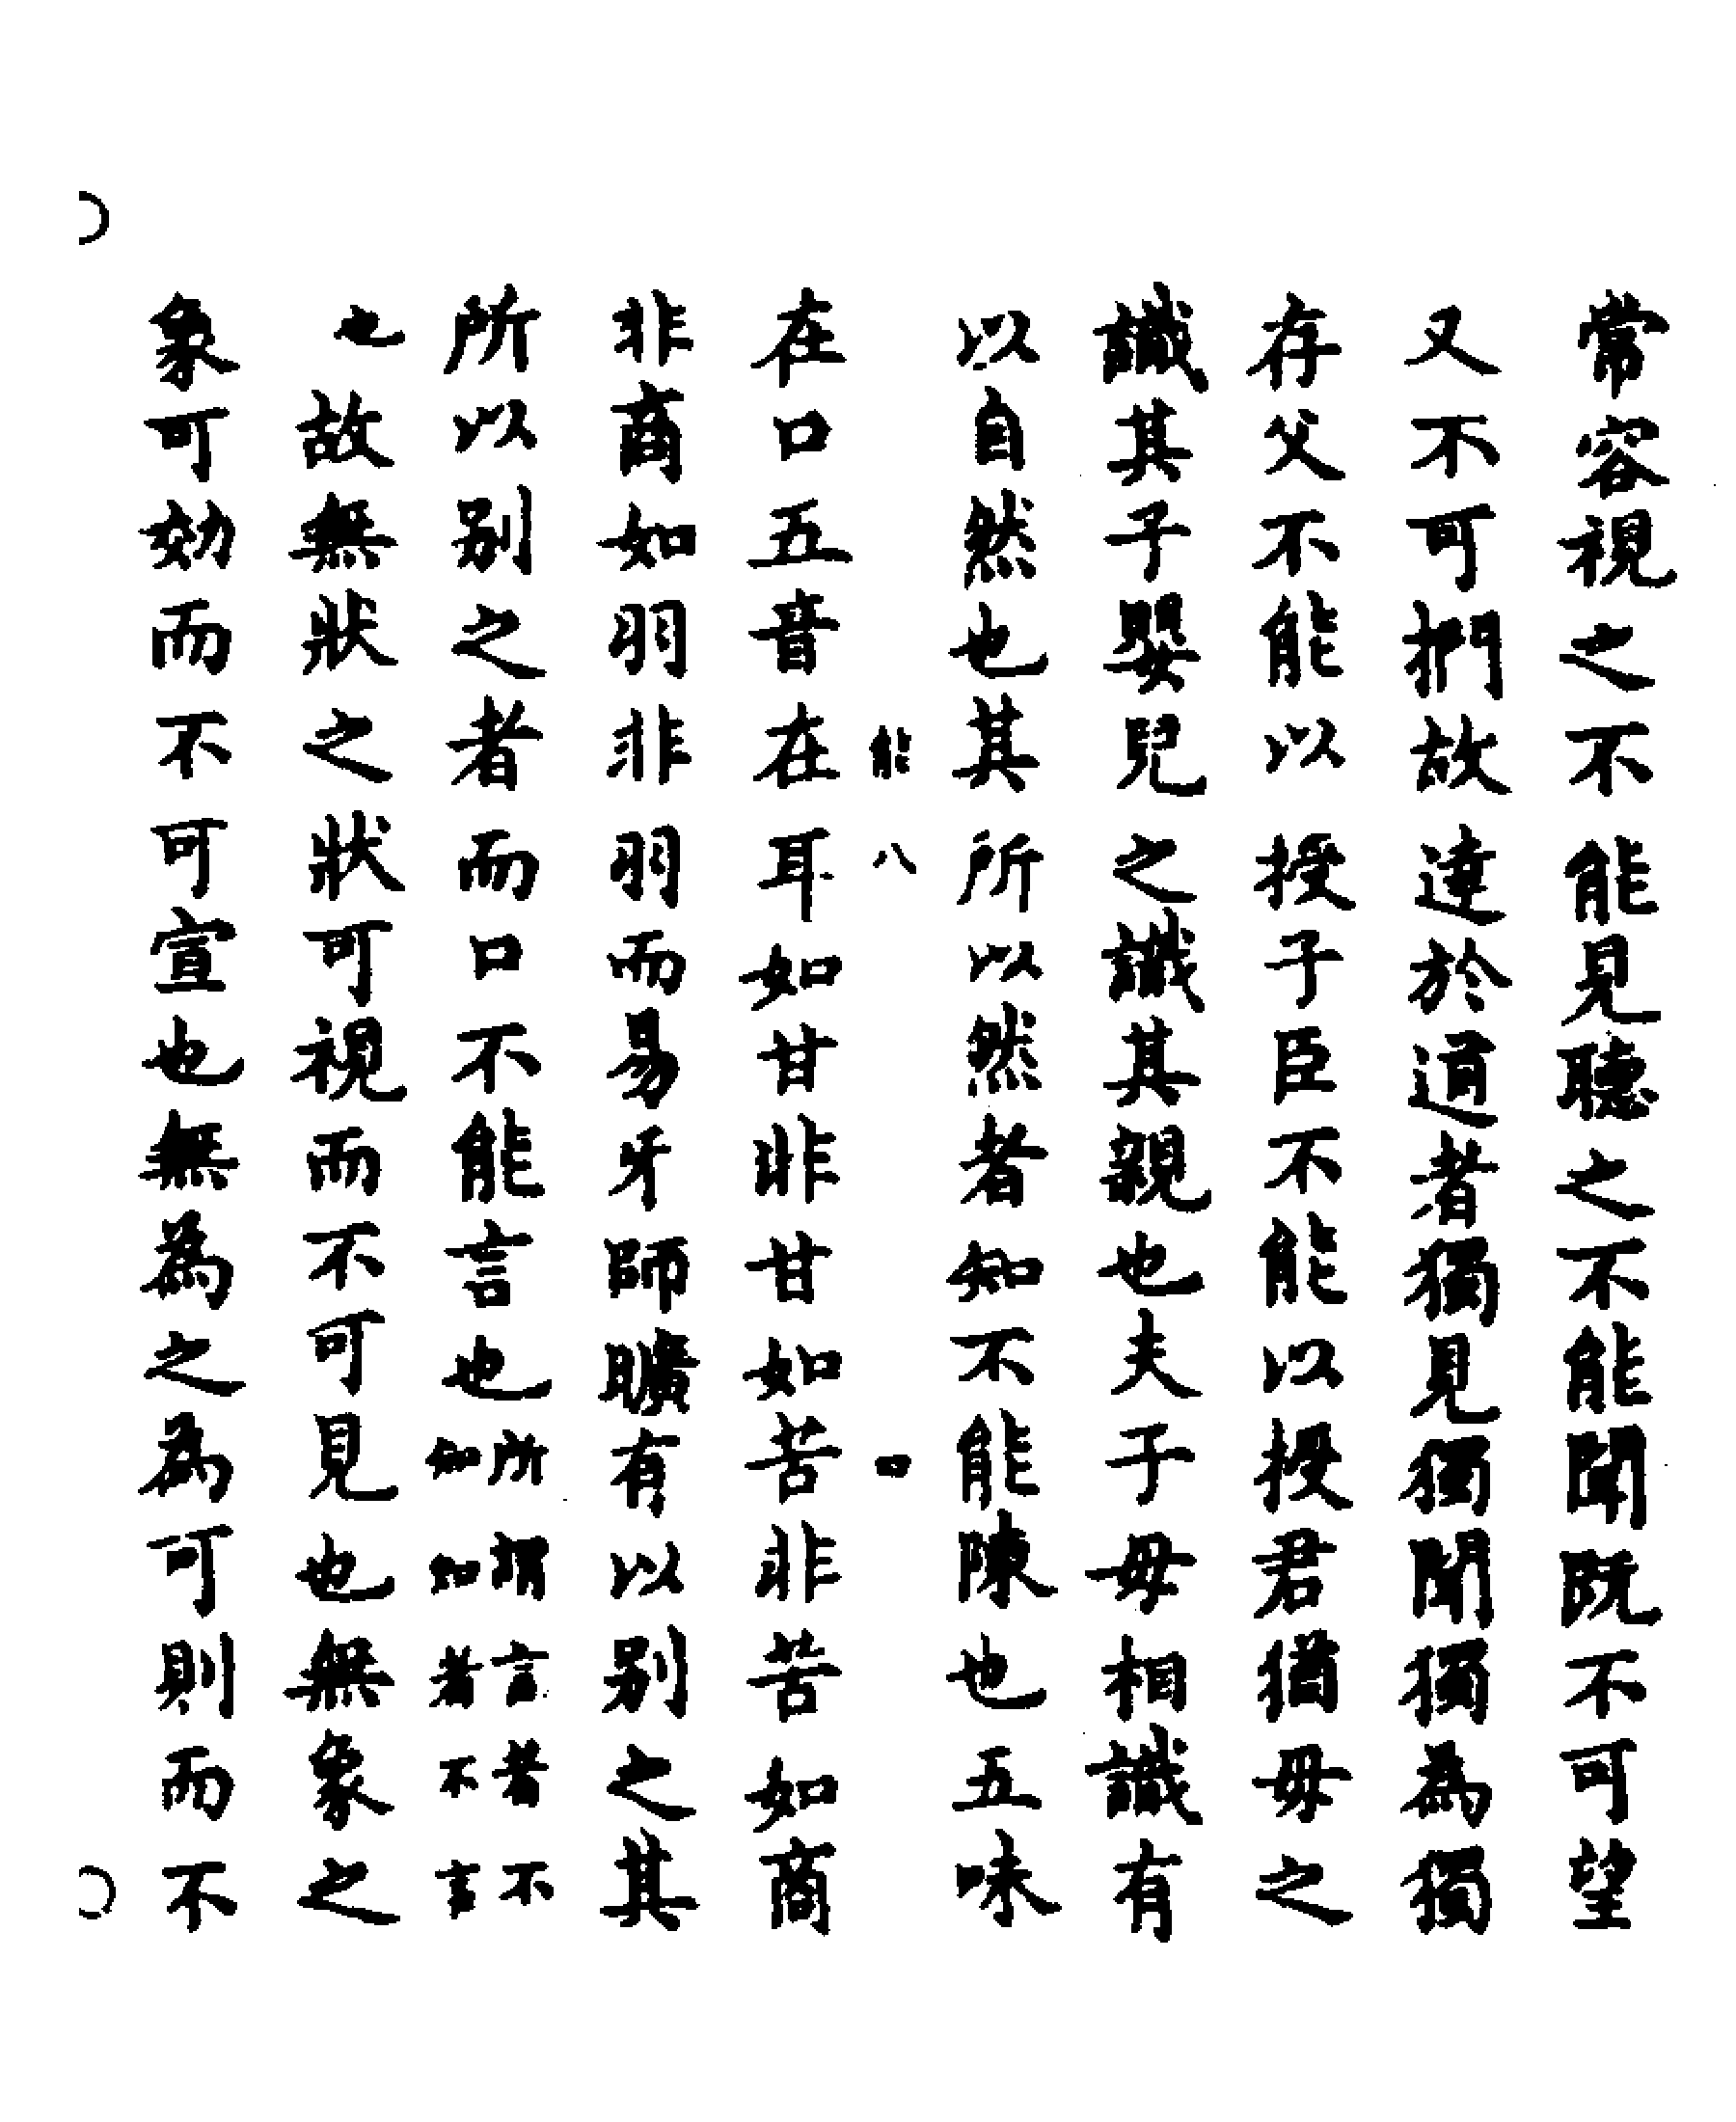 常容視之不能見聽之不能聞既不可望
又不可捫故達於道者獨見獨聞獨為獨
存父不能以授子臣不能以授君猶母之
識其子嬰兒之識其親也夫子母相識有
以自然也其所以然者知不能陳也五味
能八 口
在口五音在耳如甘非甘如苦非苦如商
非商如羽非羽而易牙師曠有以別之其
所以別之者而口不能言也所謂言者不知知者不言
也故無狀之狀可視而不可見也無象之
象可効而不可宣也無為之為可則而不